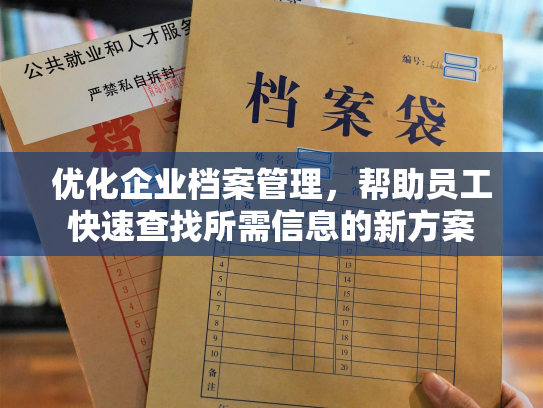 公共就业和人才服务
严禁私自拆封
档
编号:
档案袋
姓名
优化企业档案管理，帮助员工
快速查找所需信息的新方案
1
2
3
4
5
6
7
8
9
10
11
12
13
14
15
16
17
18
19
20
备注